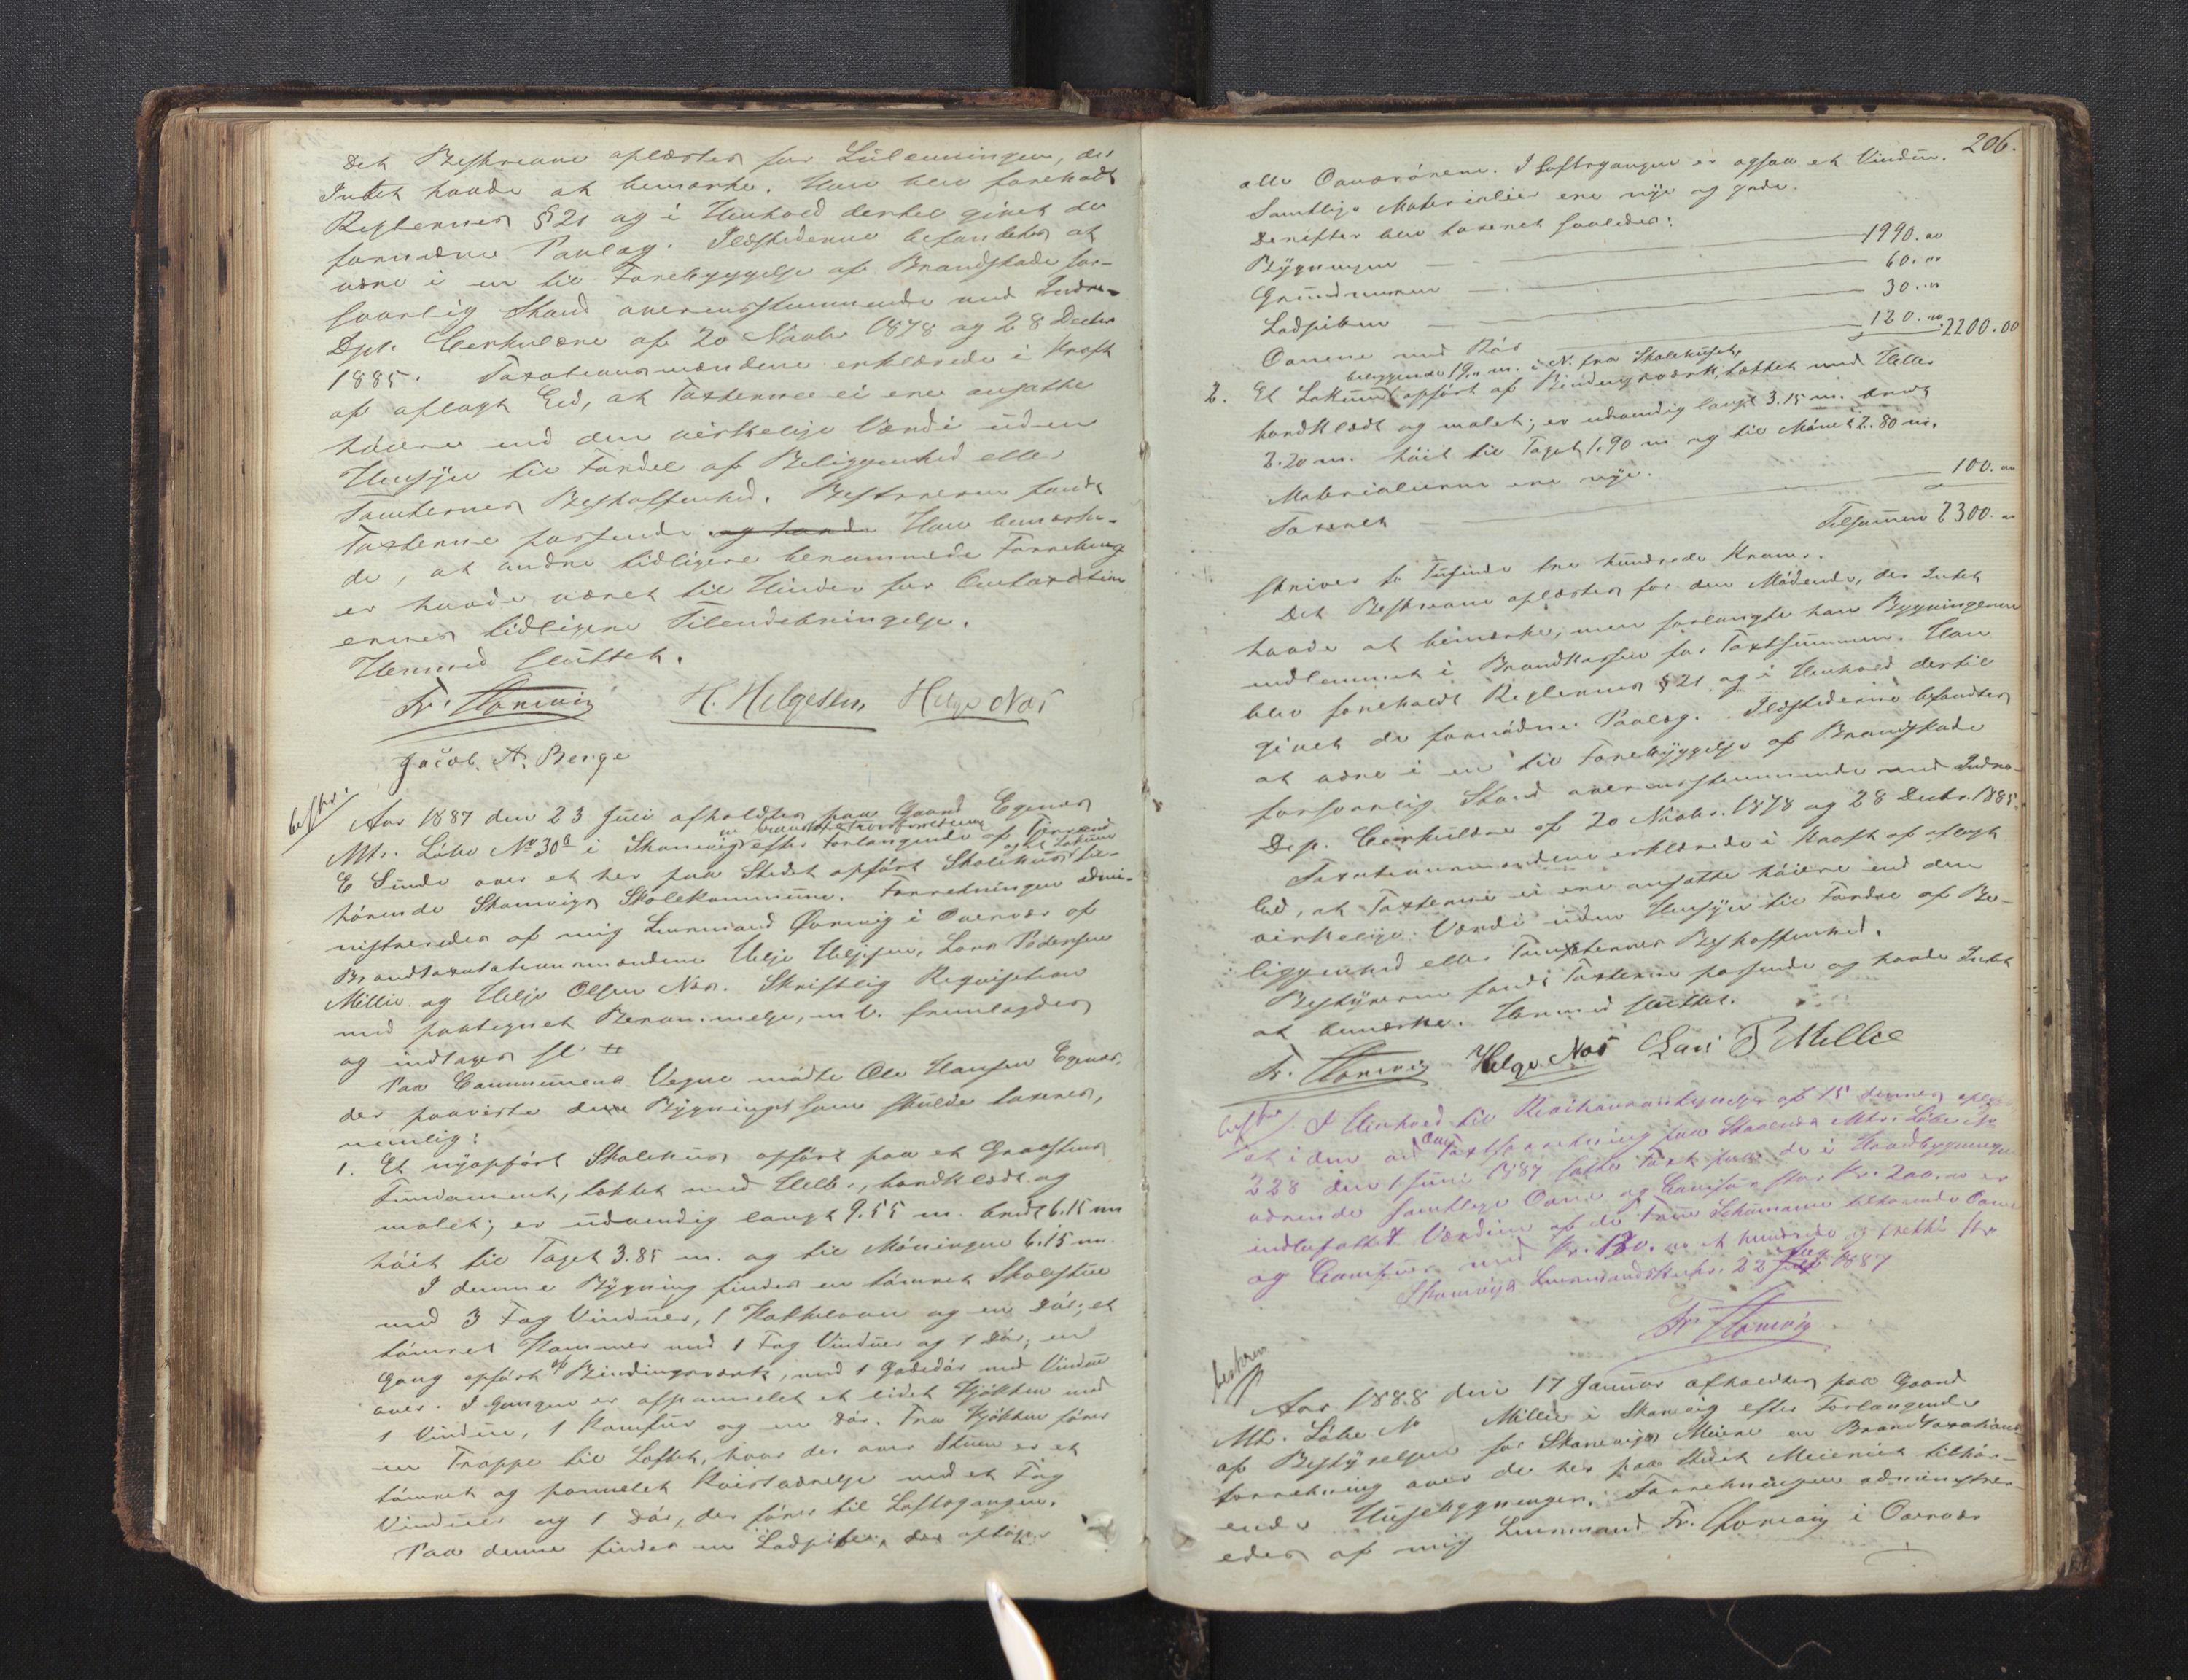 Det Beskrevne oplæstes for Lülemningen, der
Intet havde at bemærke. Han blev foreholdt
Reglernes § 21 og i Henhold dertil givet de
fornødne Paalæg. Ildstederne befandtes at
være i en til Forebyggelse af Brandskade for-
svarlig Stand overensstemmende med Indre-
Dpt. Cirkulære af 20 Novbr 1878 og 28 Decbr
1885. Taxationsmændene erklærede i Kraft
af aflagt Eed, at Taxterne ei ere ansatte
høiere end den virkelige Værdi uden
Hensyn til Fordel af Beliggenhed eller
Tomternes Beskaffenhed. Bestyreren fandt
Taxterne passende og havde Han bemærke-
de, at andre tidligere berammede Forretning
er havde været til Hinder for Omtaxation
ernes tidligere Tilendebringelse.
Hermed Sluttet.
Fr. Hornwig H. Helgesen Helge Næs
Jacob. A. Berge
beskr.
Aar 1887 den 23 Juli afholdtes paa Gaard Egenæs
Mtr. Løbe No 30a i Skonevig en Brandtaxtforretning efter Forlangende af
E Sunde over et her paa Stedet opført Skolehus og et Lokum til-
hørende Skonevigs Skolekommune. Forretningen admi-
nistreredes af mig Lensmand Hornwig i Overvær af
Brandtaxationsmændene Helje Heljesen, Lars Pedersen
Millie og Helje Olsen Næs. Skriftlig Reqvisition
med paategnet Berammelse, m. v. fremlagdes
og indtages sl.
Paa Communens Vegne mødte Ole Hansen Egenæs,
der paaviste de Bygninger som skulde taxeres,
nemlig:
1. Et nyopført Skolehus opført paa et Graastens
Fundament, tækket med Heller, bordklædt og
malet; er udvendig langt 9.55 m. bredt 6.15 m
høit til Taget 3.85 m. og til Møningen 6.15 m.
I denne Bygning findes en tømret Skolestue
med 3 Fag Vinduer, 1 Kakkelovn og en Dør; et
tømret Kammer med 1 Fag Vinduer og 1 Dør; en
Gang opført af Bindingsværk, med 1 Gadedør med Vindue
over. I Gangen er afpannelet et lidet Kjøkken med
1 Vindue, 1 Komfur og en Dør. Fra Kjøkken fører
en Trappe til Loftet, hvor der over Stuen er et
tømret og pannelet Kvistværelse med et Fag
Vinduer og 1 Dør, der fører til Loftsgangen.
Paa denne findes en Ladpibe, der optager
206.
alle Ovnsrørene. I Loftsgangen er ogsaa et Vindue.
Samtlige Materialier ere nye og gode.
Derefter blev taxeret saaledes:
Bygningen 1990.00
Grundmuren 60.00
Ladpiben 30.00
Ovnene med Rør 120.00 2200.00
beliggende 19.. m. i N. fra Skolehuset,
2. Et Lokum opført af Bindingsværk, tækket med Heller
bordklædt og malet; er udvendig langt 3.15 m. bredt
2.20 m. høit til Taget 1.90 m og til Mønet 2.80 m.
Materialierne ere nye.
Taxeret 100.00
Tilsammen 2300.00
skriver to Tusinde tre hundrede Kroner.
Det Beskrevne oplæstes for den Mødende, der Intet
havde at bemærke, men forlangte han Bygningerne
indlemmet i Brandkassen for Taxtsummen. Han
blev foreholdt Reglernes § 21 og i Henhold dertil
givet de fornødne Paalæg. Ildstederne befandtes
at være i en til Forebyggelse af Brandskade
forsvarlig Stand overensstemmende med Indre-
Dep. Cirkulære af 20 Novbr. 1878 og 28 Decbr. 1885.
Taxationsmændene erklærede i Kraft af aflagt
Eed, at Taxterne ei ere ansatte høiere end den
virkelige Værdi uden Hensyn til Fordel af Be-
liggenhed eller Tomternes Beskaffenhed.
Bestyreren fandt Taxterne passende og havde Intet
at bemærke. Hermed sluttet.
Fr. Hornwig Helge Næs Lars P Millie
beskr.
I Henhold til af 15 dennes
at i den ved Taxtforretning paa Mtr. Løbe No
228 den 1 Juni 1887 satte Taxt for de i Vaanbygningen
værende samtlige Ovne og Comfur stor Kr. 200.00 er
indbefattet Værdien af de Frue Schumann tilhørende Ovne
og Comfur med Kr. 130.00 et hundrede og tretti Kr
Skonevigs Lensmandskontor 22 Aug 1887
Fr. Hornwig
beskreven
Aar 1888 den 17 Januar afholdtes paa Gaard
Mtr. Løbe No Millie i Skonevig efter Forlangende
af Bestyrelsen for Skonevigs Meieri en Brandtaxations
forretning over de her paa Stedet Meieriet tilhør-
ende Husebygninger. Forretningen administrer-
edes af mig Lensmand Fr. Hornwig i Overvær